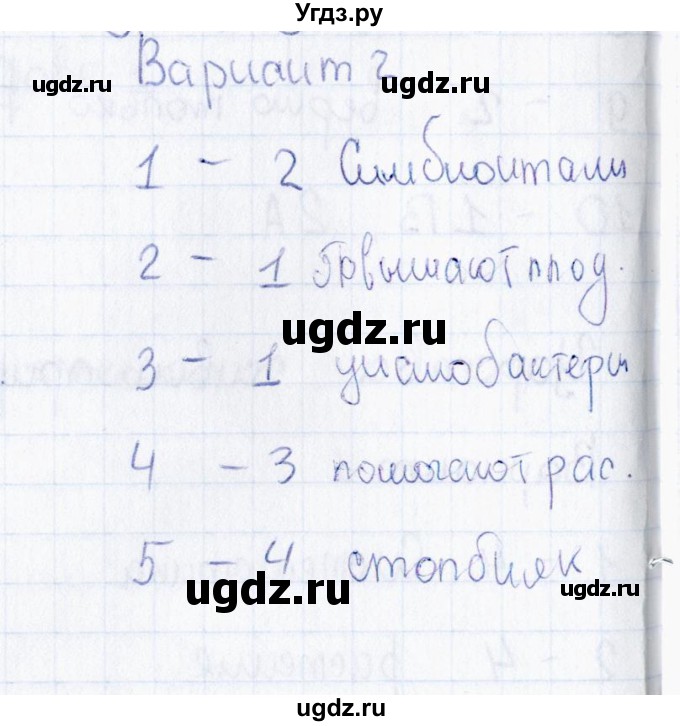 Угдз.ру
Вариант 2
ugdz.ru ugdz.ru
1 - 2 Симбионтами
2 - 1 Првышают плод.
ugdz.ru
3 - 1 цианобактеры
4 - 3 помогают рас.
5 - 4 столбняк
ugdz.ru ugdz.ru
ugdz.ru